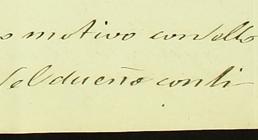 motivo con ello
el dueño conti